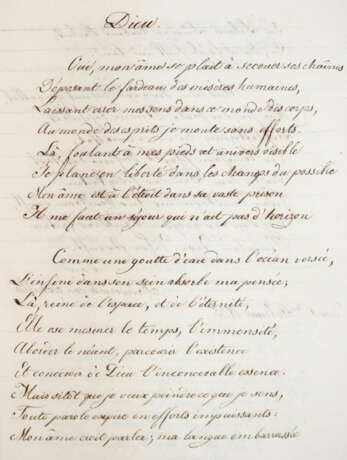 Dieu.
Oui, mon âme se plaît à secouer ses chaînes
Déposant le fardeau des misères humaines,
Laissant errer mes sens dans ce monde des corps,
Au monde des esprits je monte sans efforts.
Là, foulant à mes pieds cet univers visible
Je plane en liberté dans les champs du possible
Mon âme est à l'étroit dans sa vaste prison
Il me faut un séjour qui n'ait pas d'horizon
Comme une goutte d'eau dans l'océan versée,
L'infini dans son sein absorbe ma pensée;
Là, reine de l'espace, et de l'éternité,
Elle ose mesurer le temps, l'immensité,
Aborder le néant, parcourir l'existence
Et concevoir de Dieu l'inconcevable essence.
Mais sitôt que je veux peindre ce que je sens,
Toute parole expire en efforts impuissants.
Mon âme croit parler; ma langue embarrassée